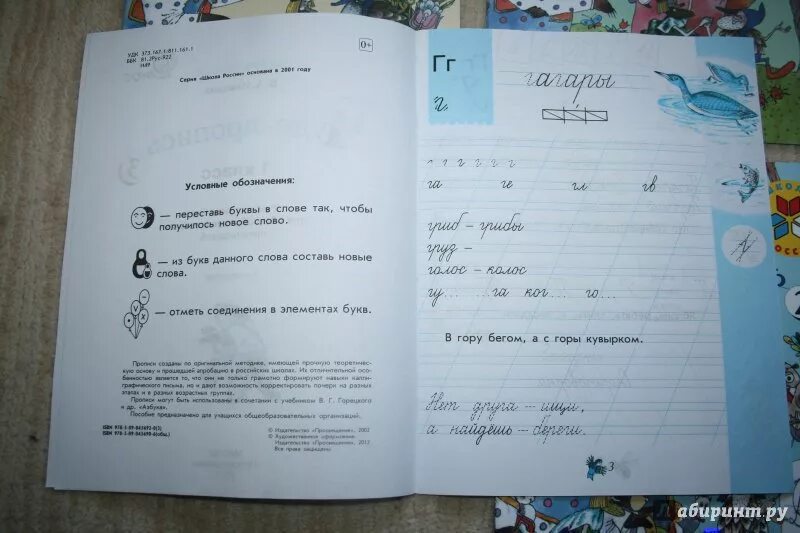 УДК 373.167.1:811.161.1
ББК 81.2Рус-922
Н49
0+
Серия «Школа России» основана в 2001 году
Условные обозначения:
— переставь буквы в слове так, чтобы
получилось новое слово.
— из букв данного слова составь новые
слова.
— отметь соединения в элементах букв.
Прописи созданы по оригинальной методике, имеющей прочную теоретичес-
кую основу и прошедшей апробацию в российских школах. Их отличительной осо-
бенностью является то, что они не только грамотно формируют навыки калли-
графического письма, но и дают возможность корректировать почерк на разных
этапах и в разных возрастных группах.
Прописи могут быть использованы в сочетании с учебником В. Г. Горецкого
и др. «Азбука».
Пособие предназначено для учащихся общеобразовательных организаций.
© Издательство «Просвещение», 2002
© Художественное оформление.
Издательство «Просвещение», 2012
Все права защищены
Гг
г
гагары
г г г г г
га ге гл гв
гриб – грибы
груз –
голос – колос
гу... га ког... го...
В гору бегом, а с горы кувырком.
Нет друга – ищи,
а найдёшь – береги.
3
абиринт.ру